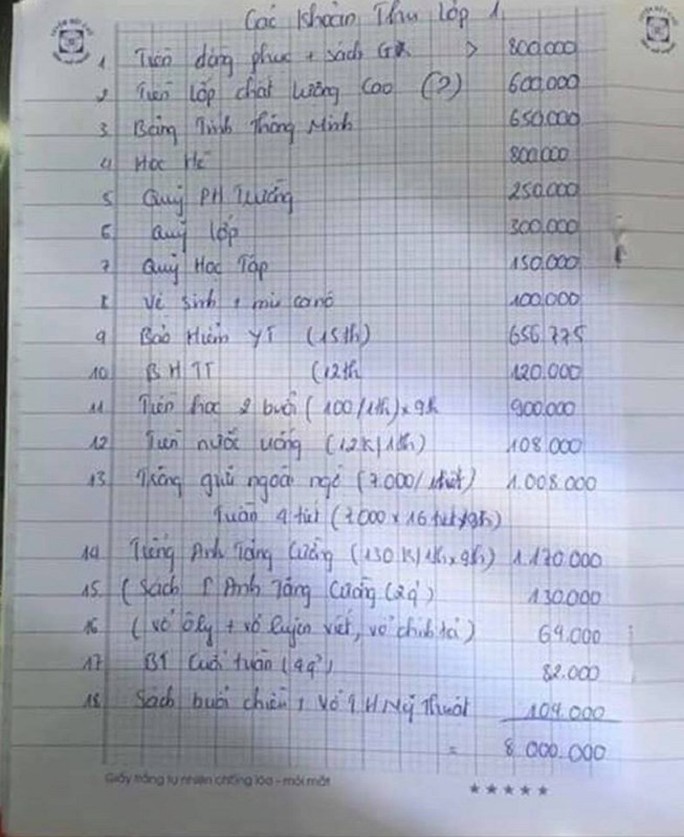 Các Khoản Thu Lớp 1
1 Tiền đồng phục + sách GK > 800.000
2 Tiền lớp chất lượng cao (?) 600.000
3 Bảng Tính Thông Minh 650.000
4 Học Hè 800.000
5 Quỹ PH Trường 250.000
6 Quỹ lớp 300.000
7 Quỹ Học Tập 150.000
8 Vệ sinh + 100.000
9 Bảo Hiểm YT (15th) 656.775
10 BHTT (12th 120.000
11 Tiền học 2 buổi (100/1th) x 9th 900.000
12 Tiền nước uống (12K/1th) 108.000
13 ngoài ngỏ (7.000/1tiết) 1.008.000
Tuần 4 tiết (7000 x 16 tiết/9th)
14 Tiếng Anh Tăng Cường (130K/1th x 9th) 1.170.000
15 (Sách T Anh Tăng Cường (2q) 130.000
16 (vở ôly + vở luyện viết, vở chính tả) 69.000
17 BT Cuối tuần (4q) 82.000
18 Sách buổi chiều, Vở TH Mỹ Thuật 104.000
= 8.000.000
Giấy trắng tự nhiên chống lóa - mỏi mắt